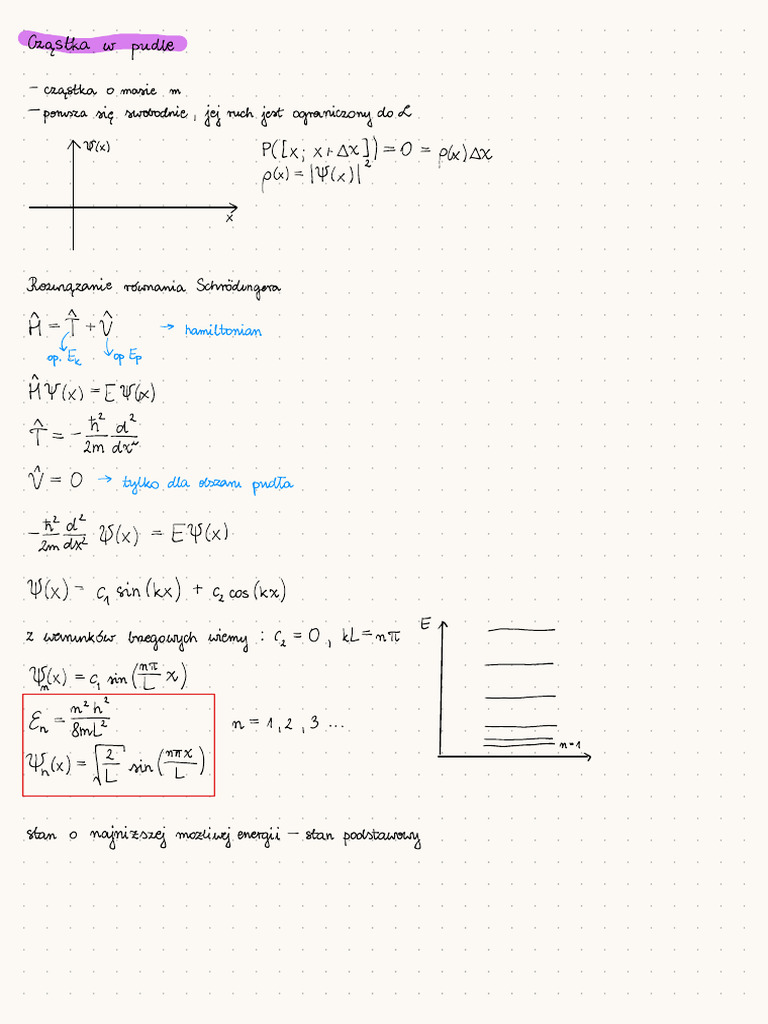 Cząstka w pudle
- cząstka o masie m
- porusza się swobodnie, jej ruch jest ograniczony do L
Ψ(x)
x
P([x; x+Δx]) = 0 = ρ(x)Δx
ρ(x) = |Ψ(x)|²
Rozwiązanie równania Schrödingera
Ĥ = T̂ + V̂ → hamiltonian
op. Eₖ op Eₚ
ĤΨ(x) = EΨ(x)
T̂ = -ħ²/2m d²/dx²
V̂ = 0 → tylko dla obszaru pudła
-ħ²/2m d²/dx² Ψ(x) = EΨ(x)
Ψ(x) = c₁ sin(kx) + c₂ cos(kx)
z warunków brzegowych wiemy : c₂ = 0, kL = nπ
Ψₙ(x) = c₁ sin(nπ/L x)
Ɛₙ = n²h²/8mL² n = 1, 2, 3 ...
Ψₙ(x) = √(2/L) sin(nπx/L)
E
n=1
stan o najniższej możliwej energii – stan podstawowy